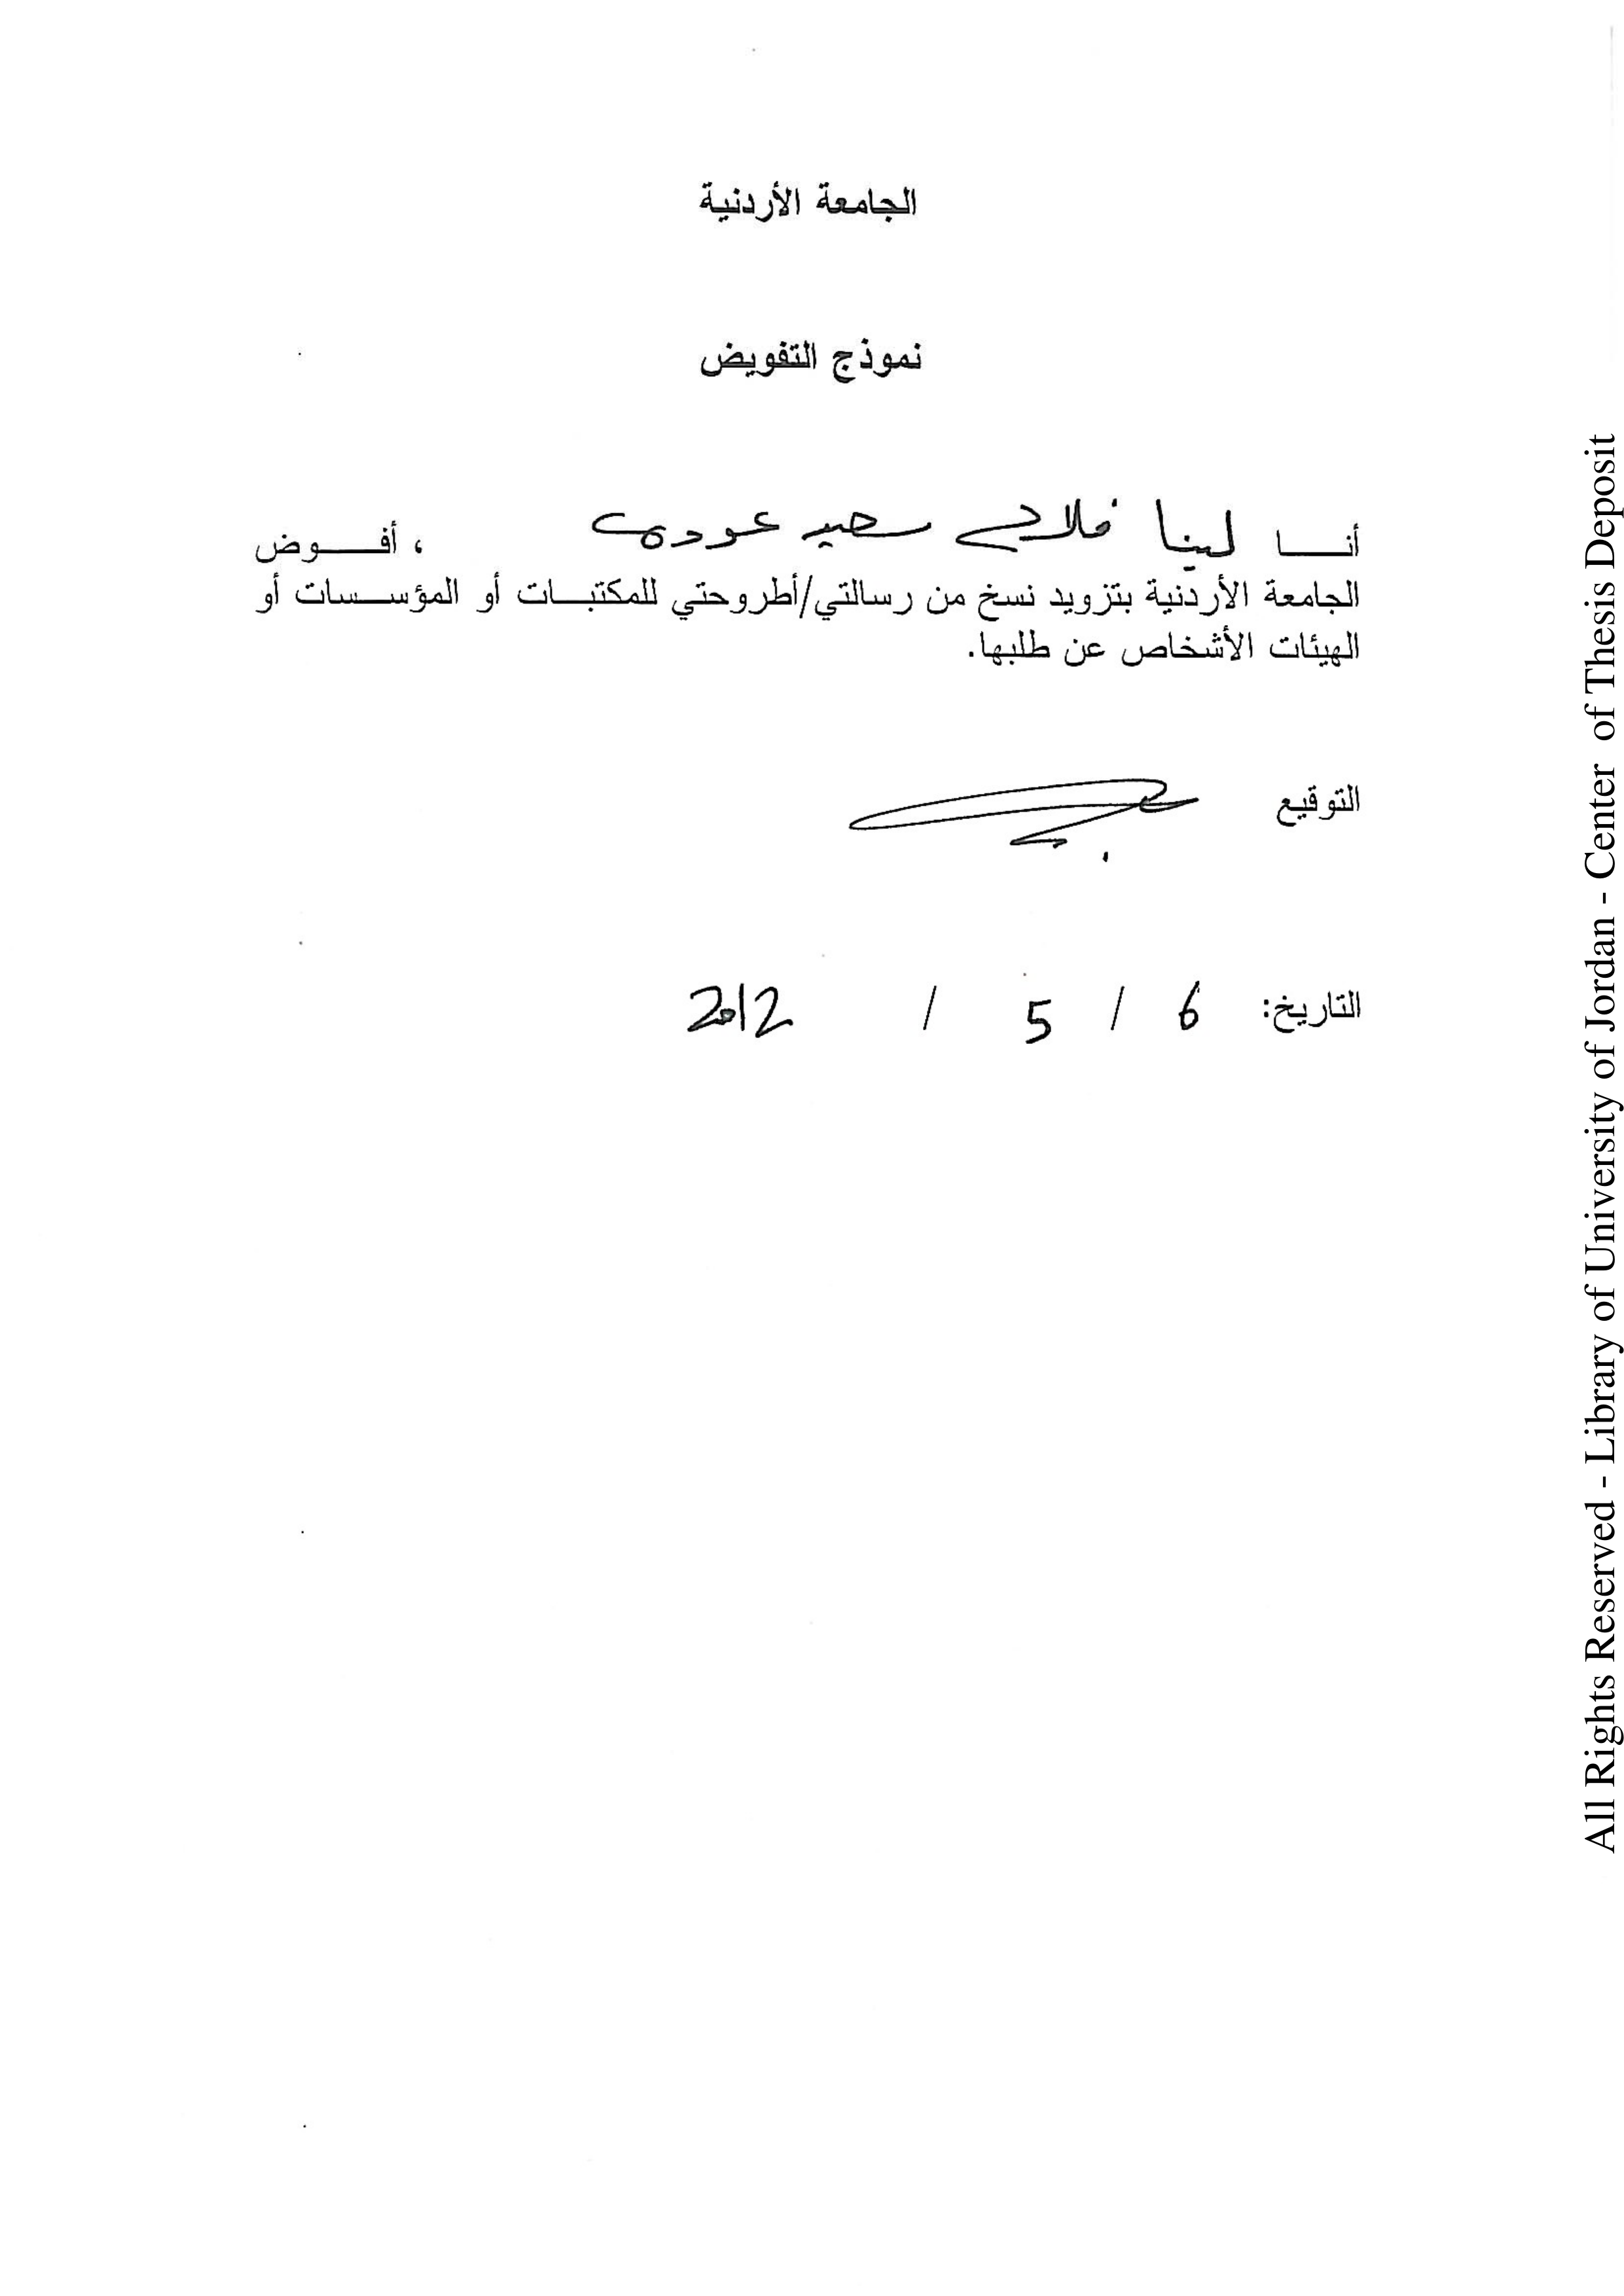 الجامعة الأردنية
نموذج التفويض
أنا لينا فلاح عودة ، أفوض
الجامعة الأردنية بتزويد نسخ من رسالتي/أطروحتي للمكتبات أو المؤسسات أو
الهيئات الأشخاص عن طلبها.
التوقيع
التاريخ: 6 / 5 / 2012
All Rights Reserved - Library of University of Jordan - Center of Thesis Deposit